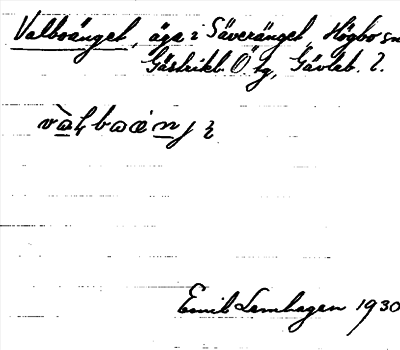 Valboänget, äga i Säveränget, Högbo sn
Gästrikl. Ö tg, Gävleb. l.
Emil Lemhagen 1930